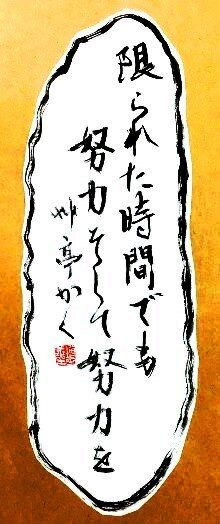 限られた時間でも
努力そして努力を
艸亭かく